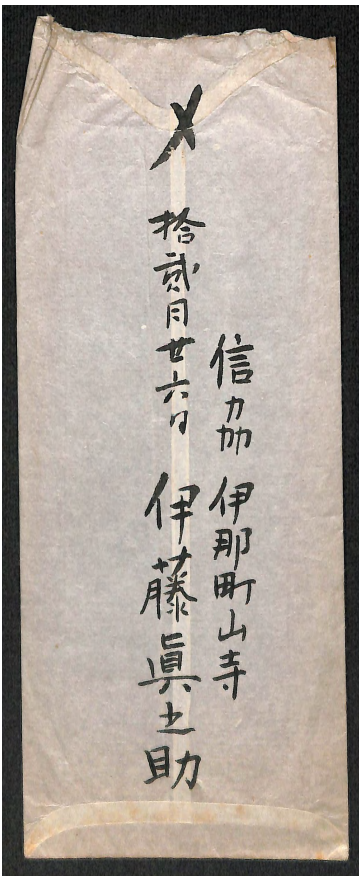 〆
信劦 伊那町山寺
拾貳月廿六日 伊藤眞之助